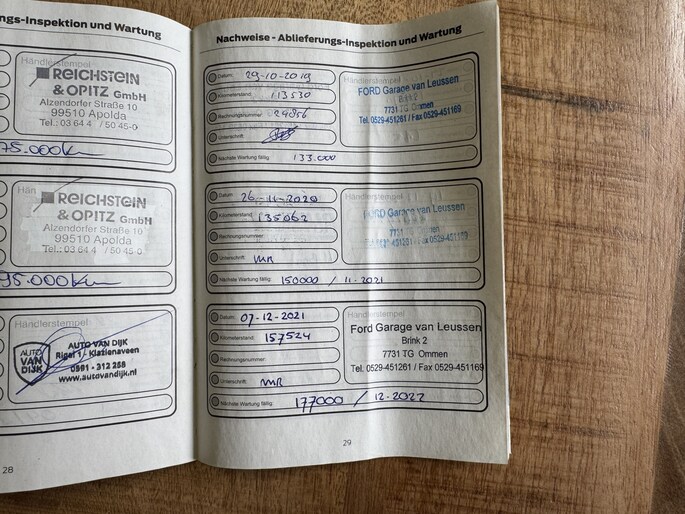 ngs-Inspektion und Wartung
Händlerstempel
REICHSTEIN
& OPITZ GmbH
Alzendorfer Straße 10
99510 Apolda
Tel.: 03 64 4 / 50 45-0
75.000km
Hän
REICHSTEIN
& OPITZ GmbH
Alzendorfer Straße 10
99510 Apolda
Tel.: 03 64 4 / 50 45-0
95.000km
Händlerstempel
AUTO VAN DIJK
AUTO VAN DIJK
Rigel 1 / Klazienaveen
0591 - 312 258
www.autovandijk.nl
28
Nachweise - Ablieferungs-Inspektion und Wartung
Datum: 29-10-2019
Kilometerstand: 113530
Rechnungsnummer: 29856
Unterschrift:
Nächste Wartung fällig: 133.000
Händlerstempel
FORD Garage van Leussen
Brink 2
7731 TG Ommen
Tel. 0529-451261 / Fax 0529-451169
Datum: 26-11-2020
Kilometerstand: 135062
Rechnungsnummer:
Unterschrift: MR
Nächste Wartung fällig: 150000 / 11-2021
Händlerstempel
FORD Garage van Leussen
7731 TG Ommen
Datum: 07-12-2021
Kilometerstand: 157524
Rechnungsnummer:
Unterschrift: MR
Nächste Wartung fällig: 177000 / 12-2022
Händlerstempel
Ford Garage van Leussen
Brink 2
7731 TG Ommen
Tel. 0529-451261 / Fax 0529-451169
29